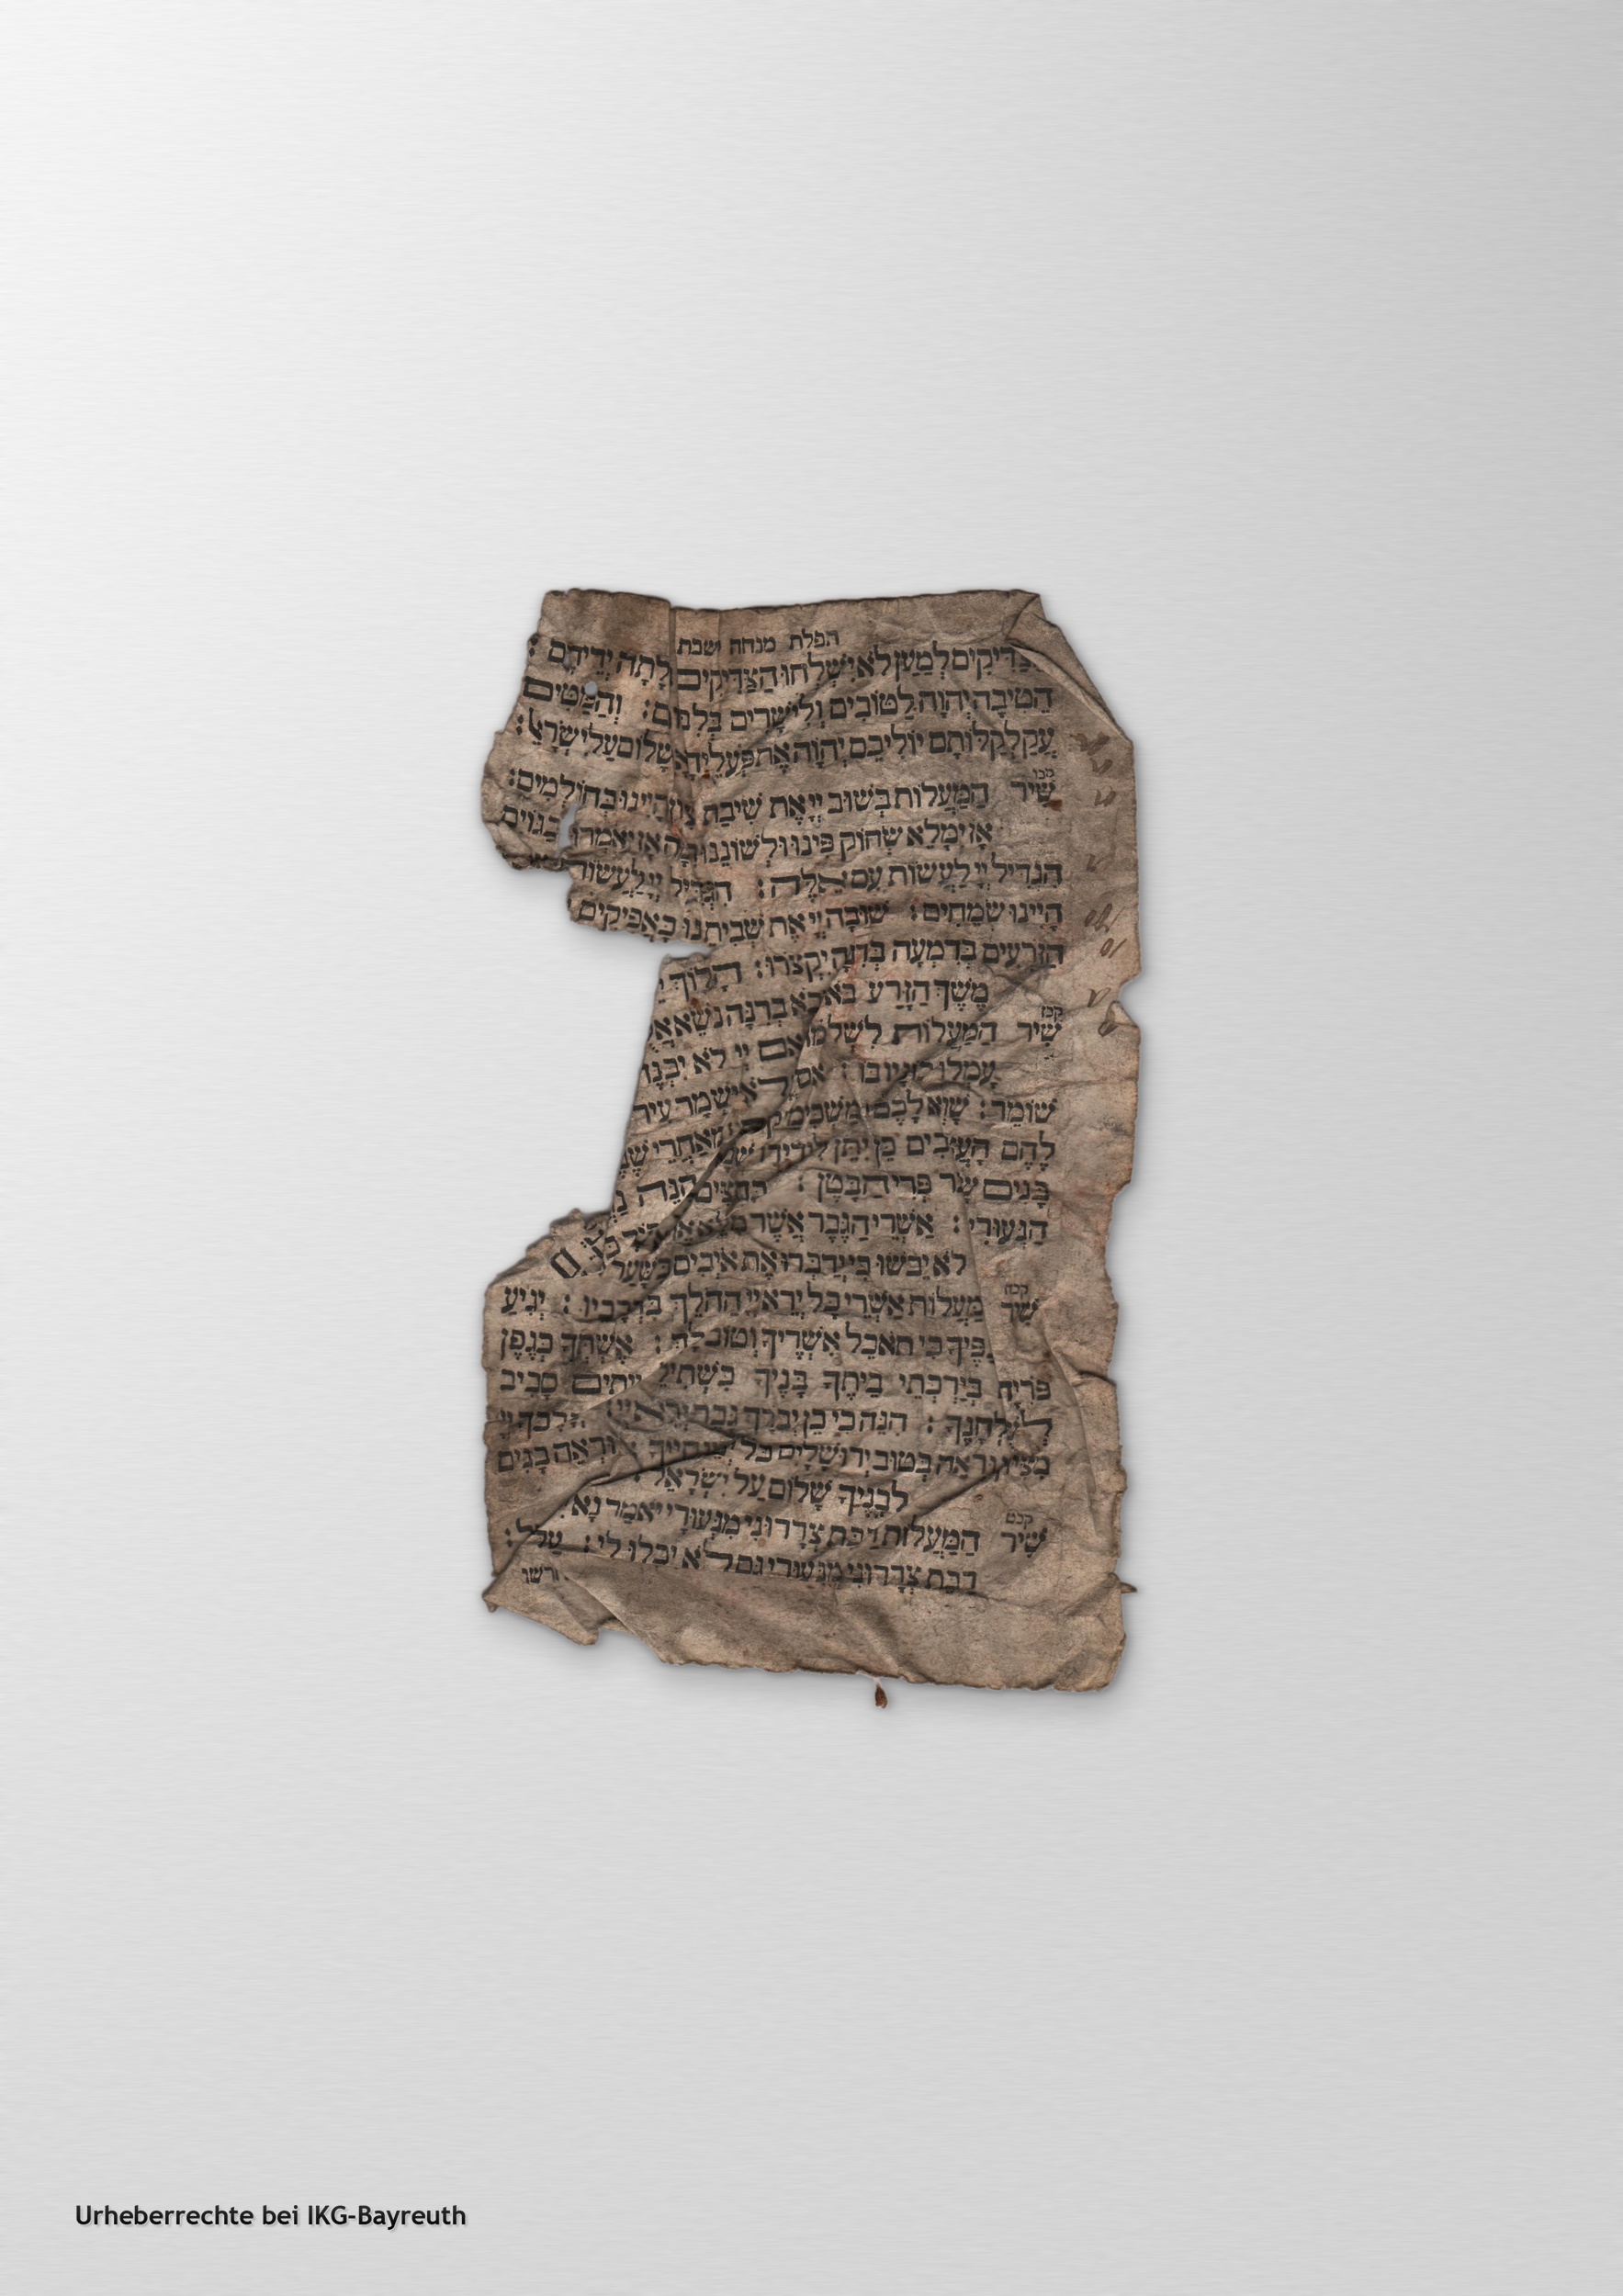 תפלת מנחה ושבת
צדיקים לְמַעַן לֹא יִשְׁלְחוּ הַצַּדִּיקִים לָתָה יְדֵיהֶם :
הֵטִיבָה יְהֹוָה לַטּוֹבִים וְלִישָׁרִים בְּלִבּוֹם : וְהַמַּטִּים
עֲקַלְקַלּוֹתָם יוֹלִיכֵם יְהֹוָה אֶת פֹּעֲלֵי שָׁלוֹם עַל יִשְׂרָאֵל :
קכו
שִׁיר הַמַּעֲלוֹת בְּשׁוּב יְיָ אֶת שִׁיבַת הָיִינוּ בְּחוֹלְמִים :
אָז יִמָּלֵא שְׂחוֹק פִּינוּ וּלְשׁוֹנֵנוּ אָז יֹאמְרוּ בַגּוֹיִם
הִגְדִּיל יְיָ לַעֲשׂוֹת עִם אֵלֶּה : הִגְדִּיל יְיָ לַעֲשׂוֹת
הָיִינוּ שְׂמֵחִים : שׁוּבָה יְיָ אֶת שְׁבִיתֵנוּ כַּאֲפִיקִים
הַזֹּרְעִים בְּדִמְעָה בְּרִנָּה יִקְצֹרוּ : הָלוֹךְ
מֶשֶׁךְ הַזָּרַע בֹּא יָבֹא בְרִנָּה נֹשֵׂא
קכז
שִׁיר הַמַּעֲלוֹת לִשְׁלֹמֹה אִם יְיָ לֹא יִבְנֶה
עָמְלוּ בוֹ : אִם לֹא יִשְׁמָר עִיר
שׁוֹמֵר : שָׁוְא לָכֶם מַשְׁכִּימֵי מְאַחֲרֵי
לֶחֶם הָעֲצָבִים כֵּן יִתֵּן לִידִידוֹ
בָּנִים שָׂכָר פְּרִי הַבָּטֶן :
הַנְּעוּרִי : אַשְׁרֵי הַגֶּבֶר אֲשֶׁר
לֹא יֵבֹשׁוּ כִּי יְדַבְּרוּ אֶת אוֹיְבִים בַּשָּׁעַר
קכח
שִׁיר מַעֲלוֹת אַשְׁרֵי כָּל יְרֵא יְיָ הַהֹלֵךְ בִּדְרָכָיו : יְגִיעַ
כַּפֶּיךָ כִּי תֹאכֵל אַשְׁרֶיךָ וְטוֹב לָךְ : אֶשְׁתְּךָ כְּגֶפֶן
פֹּרִיָּה בְּיַרְכְּתֵי בֵיתֶךָ בָּנֶיךָ כִּשְׁתִילֵי זֵיתִים סָבִיב
לְשֻׁלְחָנֶךָ : הִנֵּה כִי כֵן יְבֹרַךְ גָּבֶר יְרֵא יְיָ : יְבָרֶכְךָ יְיָ
מִצִּיּוֹן וּרְאֵה בְּטוּב יְרוּשָׁלָיִם כָּל יְמֵי חַיֶּיךָ : וּרְאֵה בָנִים
לְבָנֶיךָ שָׁלוֹם עַל יִשְׂרָאֵל
קכט
שִׁיר הַמַּעֲלוֹת רַבַּת צְרָרוּנִי מִנְּעוּרַי יֹאמַר נָא
רַבַּת צְרָרוּנִי מִנְּעוּרַי גַּם לֹא יָכְלוּ לִי : עַל :
חרשו
Urheberrechte bei IKG-Bayreuth